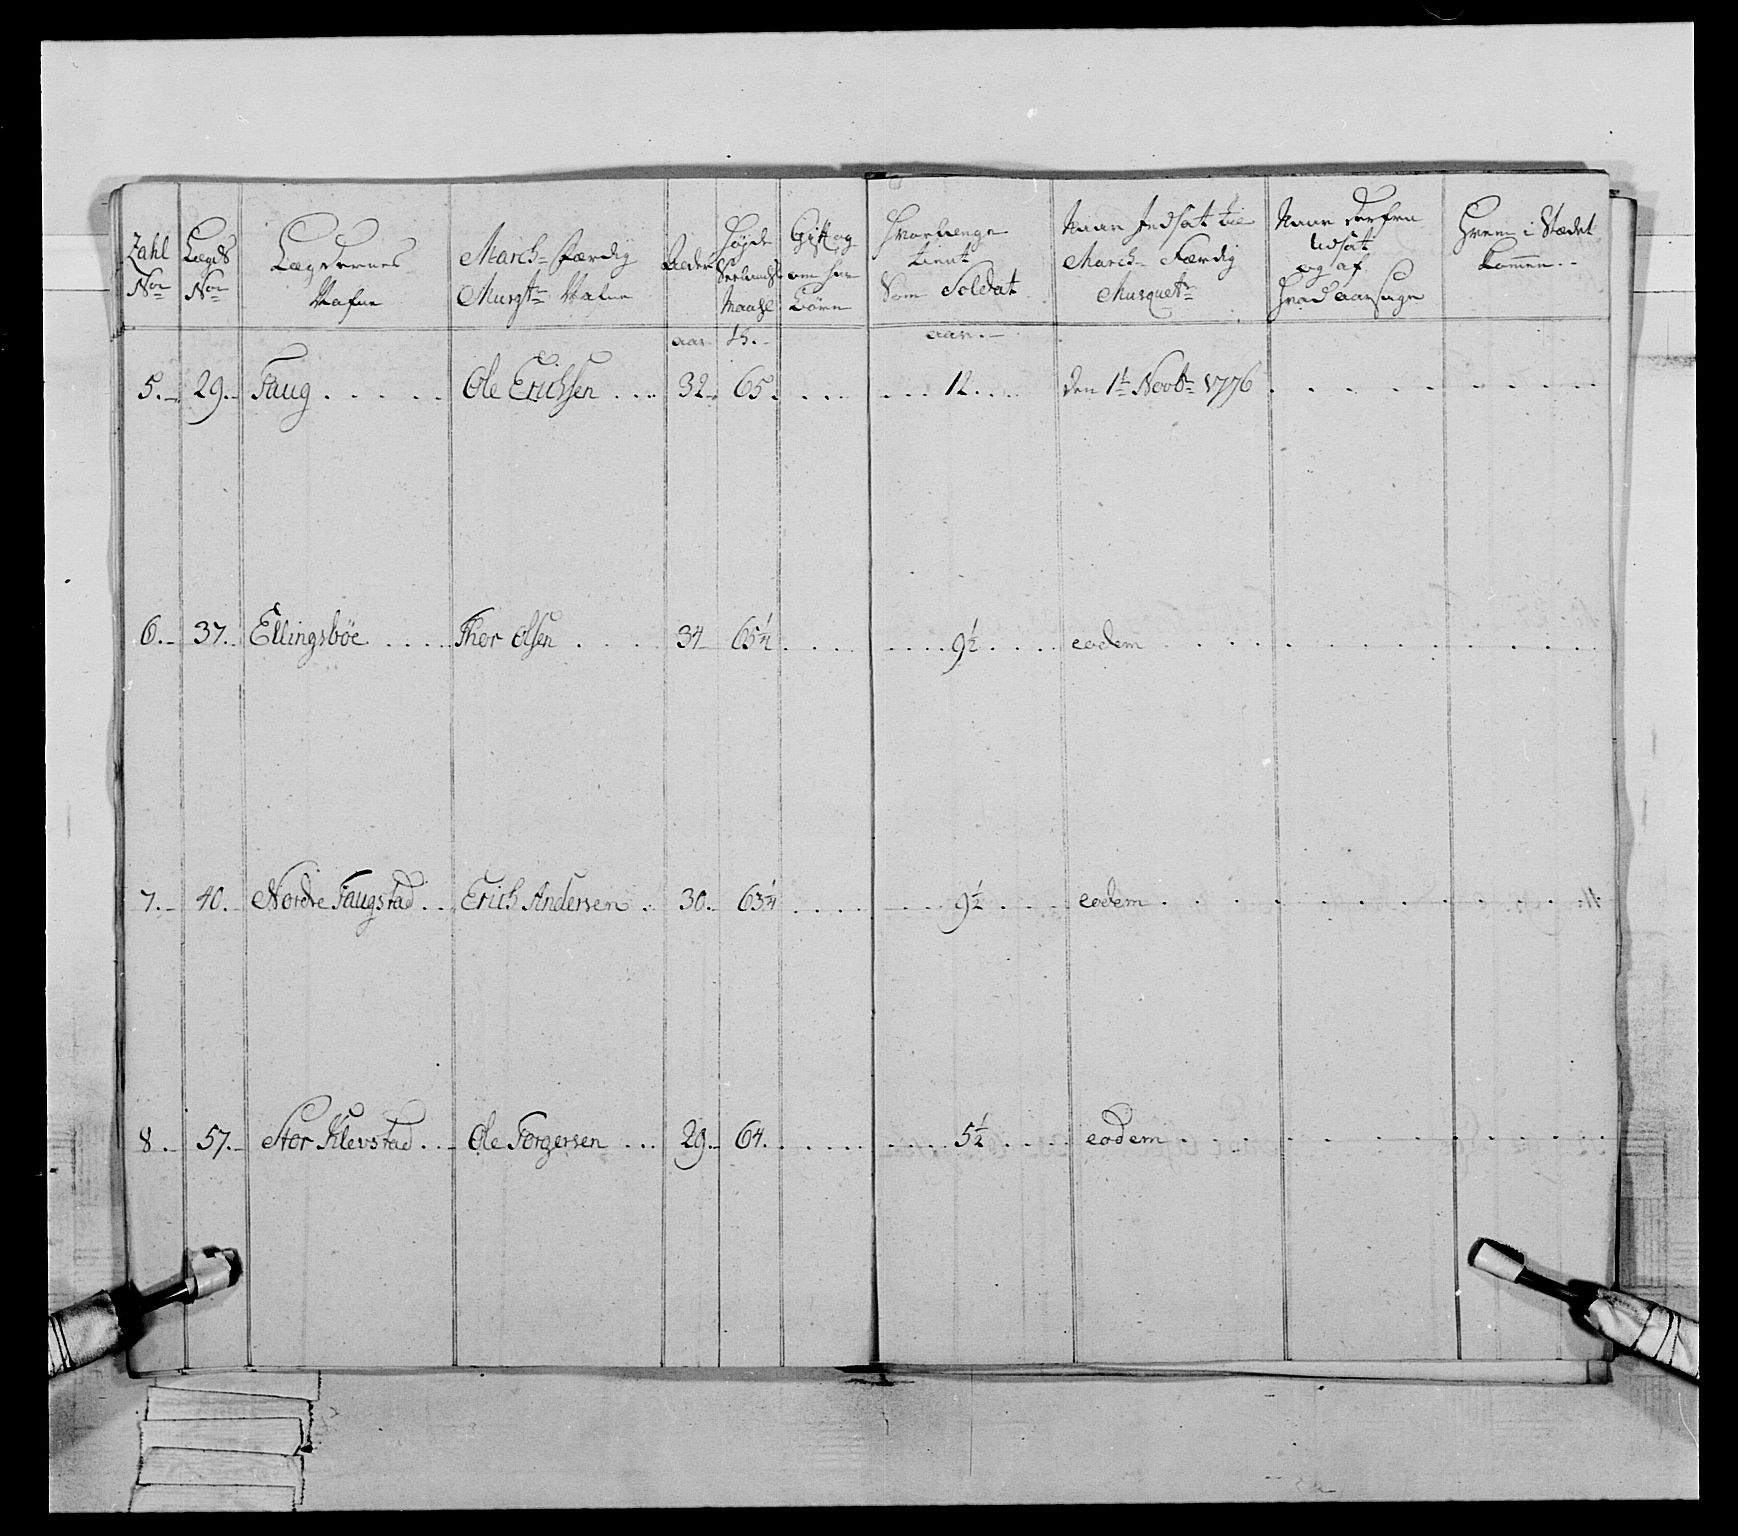 Zahl Nor
Lægds Nor
Lægdernes Nafne
March-Færdig Musqtr Nafne
Alder
Høyde Seelandsk Maahl
Gift og om har Børn
Hvorlænge tient Som Soldat
Naar Indsat til March-Færdig Musquetr
Naar derfra Udsat og af Hvad aarsage
Hvem i Stædet kommen..
aar. tt. aar.
5. 29. Faug . . . . . Ole Erichsen . . . 32. 65. . . . . . . 12. . . . den 1t Novbr 1776 . . . . . . . . .
6. 37. Ellingsbøe . . . . . Thor Olsen . . . . 34 65¼ . . . . . . . . 9½ . . . . eodem . . . . . . . . . . . .
7. 40. Nordre Faugstad . . Erich Andersen . . 30. 63¼ . . . . . . . 9½ . . . . eodem . . . . . . . . . . .
8. 57. Stor Klevstad . . Ole Torgersen . . . 29. 64. . . . . . . . . 5½ . . . . eodem . . . . . . . . . . . .